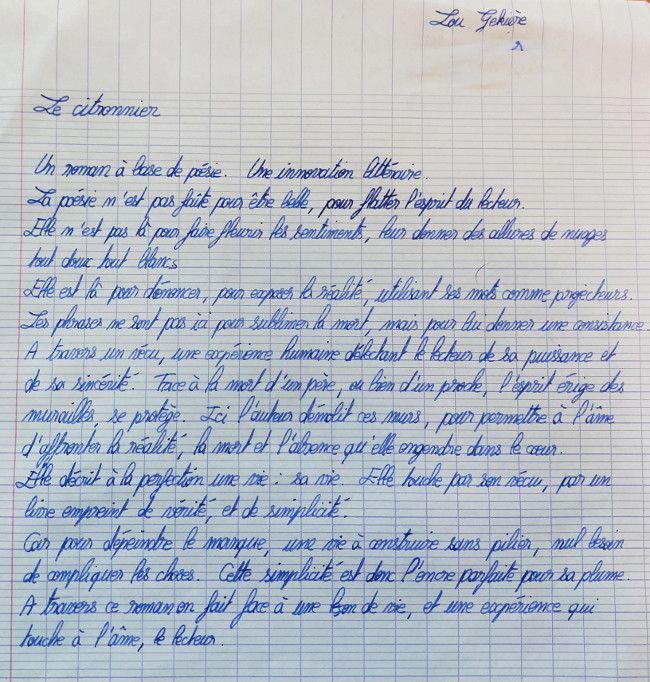 Lou Gekière
Le citronnier
Un roman à base de poésie. Une innovation littéraire.
La poésie n'est pas faite pour être belle, pour flatter l'esprit du lecteur.
Elle n'est pas là pour faire fleurir les sentiments, leur donner des allures de nuages
tout doux tout blancs
Elle est là pour dénoncer, pour exposer la réalité, utilisant ses mots comme projecteurs.
Les phrases ne sont pas ici pour sublimer la mort, mais pour lui donner une consistance.
A travers un vécu, une expérience humaine délectant le lecteur de sa puissance et
de sa sincérité. Face à la mort d'un père, ou bien d'un proche, l'esprit érige des
murailles, se protège. Ici l'auteur démolit ces murs, pour permettre à l'âme
d'affronter la réalité, la mort et l'absence qu'elle engendre dans le cœur.
Elle décrit à la perfection une vie : sa vie. Elle touche par son vécu, par un
livre empreint de vérité, et de simplicité.
Car pour dépeindre le manque, une vie à construire sans pilier, nul besoin
de compliquer les choses. Cette simplicité est donc l'encre parfaite pour sa plume.
A travers ce roman on fait face à une leçon de vie, et une expérience qui
touche à l'âme, le lecteur.